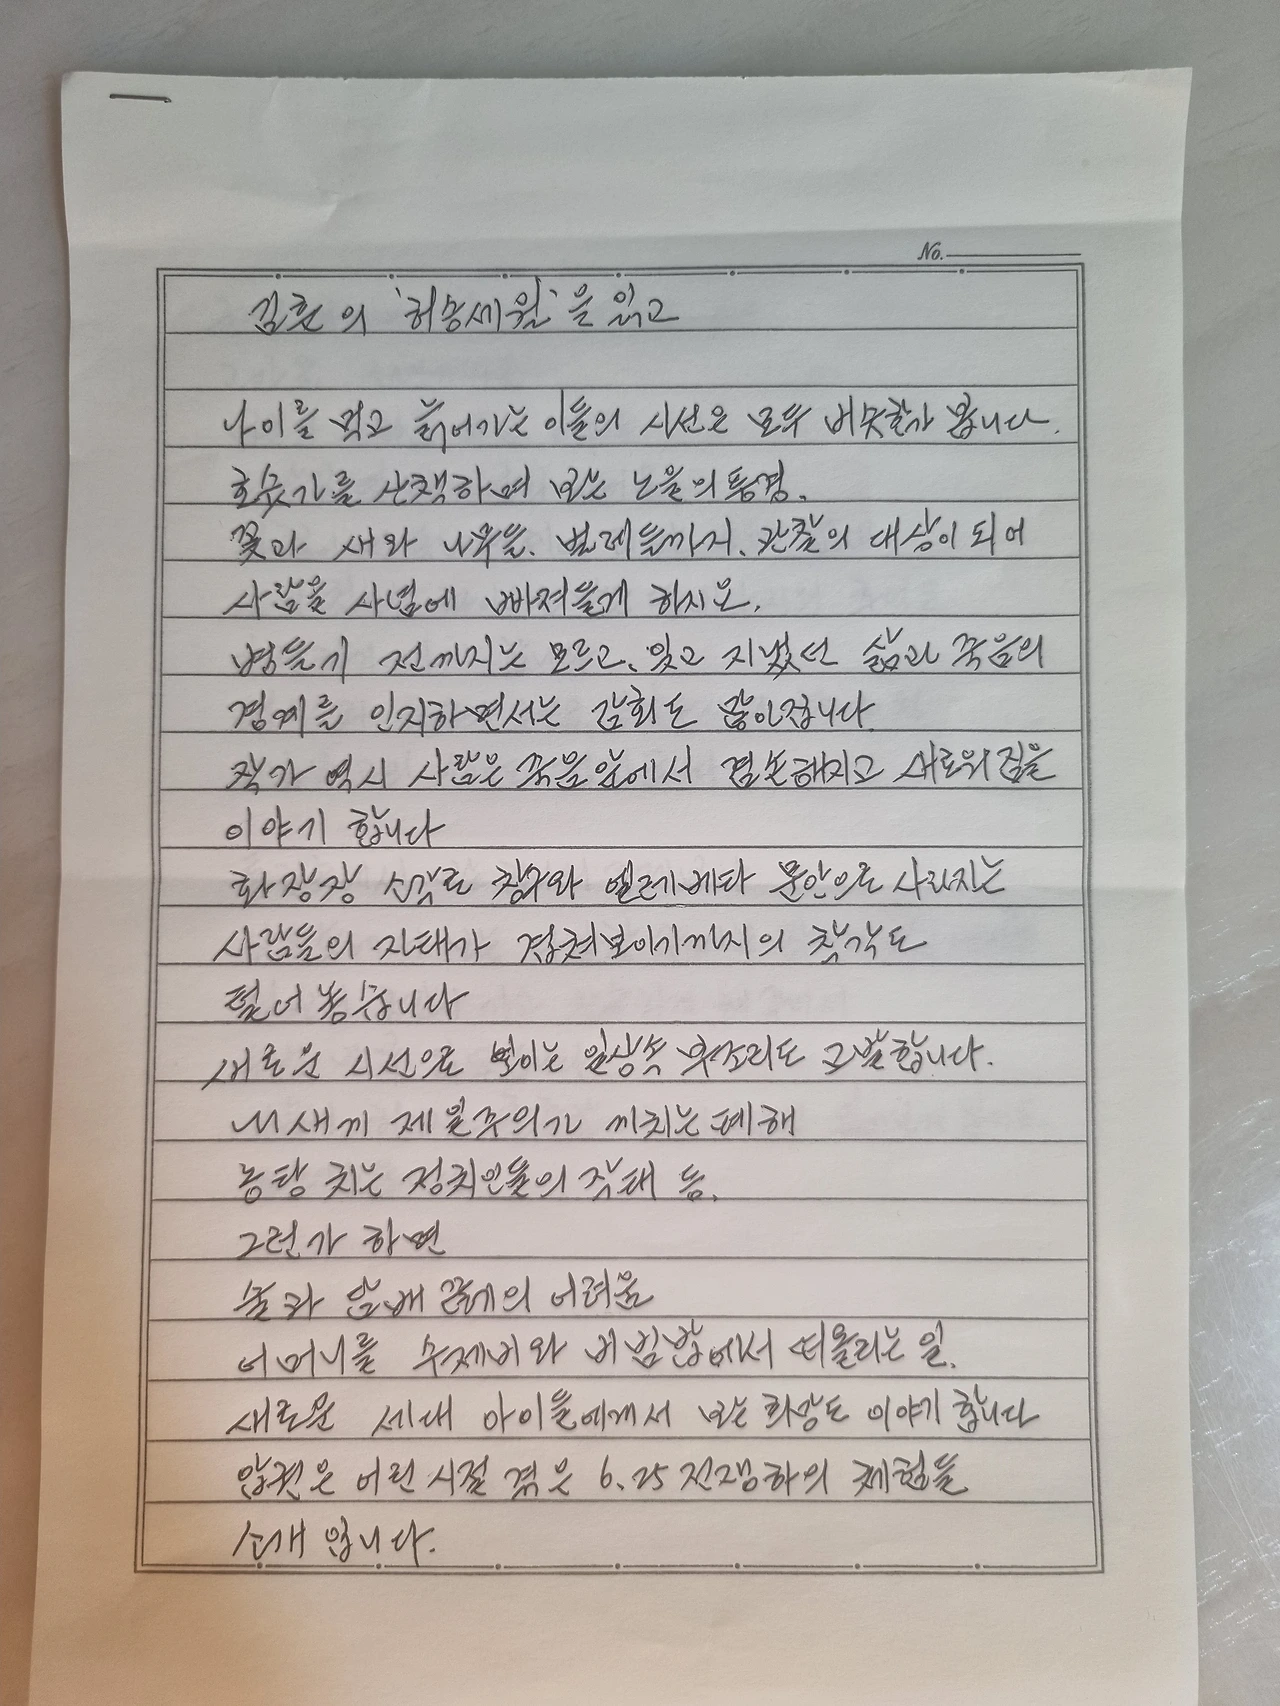 No.
김훈의 '허송세월'을 읽고
나이를 먹고 늙어가는 이들의 시선은 모두 비슷한가 봅니다.
호숫가를 산책하며 보는 노을의 풍경.
꽃과 새와 나무들. 벌레들까지. 관찰의 대상이 되어
사람을 사념에 빠져들게 하지요.
병들기 전까지는 모르고. 잊고 지냈던 삶과 죽음의
경계를 인지하면서는 감회도 많아집니다.
작가 역시 사람은 죽음 앞에서 겸손해지고 새로워짐을
이야기 합니다
화장장 소각로 창구와 엘레베타 문안으로 사라지는
사람들의 자태가 겹쳐보이기까지의 착각도
털어놓습니다
새로운 시선으로 보이는 일상속 헛소리도 고발합니다.
내새끼 제일주의가 끼치는 폐해
농탕 치는 정치인들의 작태 등.
그런가 하면
술과 담배 끊기의 어려움
어머니를 수제비와 비빔밥에서 떠올리는 일.
새로운 세대 아이들에게서 보는 희망도 이야기 합니다
압권은 어린시절 겪은 6.25 전쟁하의 체험들
소개 입니다.